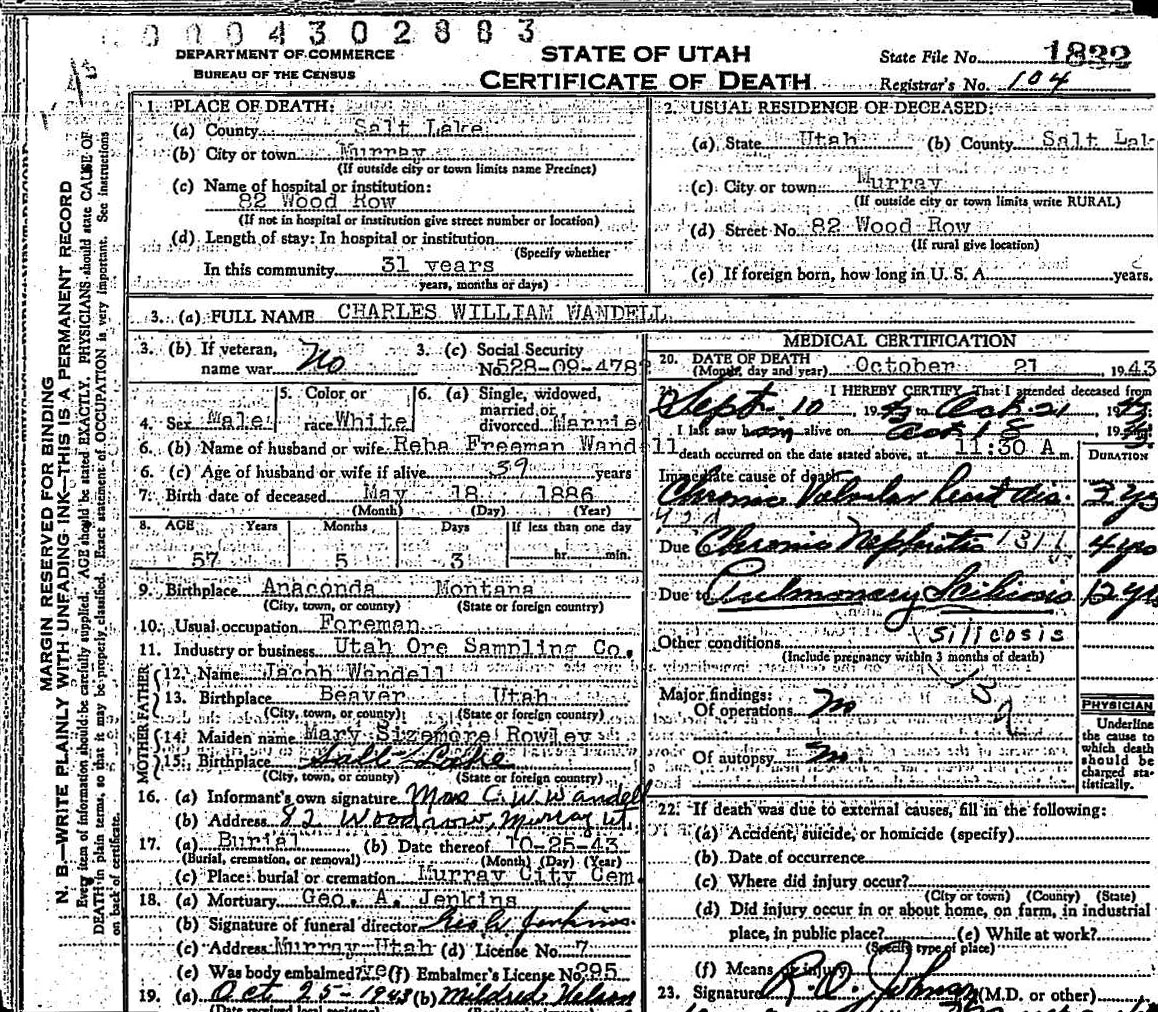 0004302883
DEPARTMENT OF COMMERCE
BUREAU OF THE CENSUS
STATE OF UTAH
CERTIFICATE OF DEATH
State File No. 1832
Registrar's No. 104
MARGIN RESERVED FOR BINDING
N. B.—WRITE PLAINLY WITH UNFADING INK—THIS IS A PERMANENT RECORD
Every item of information should be carefully supplied. AGE should be stated EXACTLY. PHYSICIANS should state CAUSE OF
DEATH in plain terms, so that it may be properly classified. Exact statement of OCCUPATION is very important. See instructions
on back of certificate.
1. PLACE OF DEATH:
(a) County Salt Lake
(b) City or town Murray
(If outside city or town limits name Precinct)
(c) Name of hospital or institution:
82 Wood Row
(If not in hospital or institution give street number or location)
(d) Length of stay: In hospital or institution
(Specify whether
In this community 31 years
years, months or days)
2. USUAL RESIDENCE OF DECEASED:
(a) State Utah (b) County Salt Lak
(c) City or town Murray
(If outside city or town limits write RURAL)
(d) Street No. 82 Wood Row
(If rural give location)
(e) If foreign born, how long in U. S. A. years.
3. (a) FULL NAME CHARLES WILLIAM WANDELL
3. (b) If veteran, name war No
3. (c) Social Security No. 528-09-478
4. Sex Male
5. Color or race White
6. (a) Single, widowed, married or divorced Marrie
6. (b) Name of husband or wife Reba Freeman Wandell
6. (c) Age of husband or wife if alive 39 years
7. Birth date of deceased May 18 1886
(Month) (Day) (Year)
8. AGE Years Months Days If less than one day
57 5 3 hr. min.
9. Birthplace Anaconda Montana
(City, town, or county) (State or foreign country)
10. Usual occupation Foreman
11. Industry or business Utah Ore Sampling Co.
FATHER
12. Name Jacob Wandell
13. Birthplace Beaver Utah
(City, town, or county) (State or foreign country)
MOTHER
14. Maiden name Mary Sizemore Rowley
15. Birthplace Salt Lake
(City, town, or county) (State or foreign country)
16. (a) Informant's own signature Mrs C. W. Wandell
(b) Address 82 Woodrow, Murray Ut.
17. (a) Burial (b) Date thereof 10-25-43
(Burial, cremation, or removal) (Month) (Day) (Year)
(c) Place: burial or cremation Murray City Cem.
18. (a) Mortuary Geo. A. Jenkins
(b) Signature of funeral director Jenkins
(c) Address Murray Utah (d) License No. 7
(e) Was body embalmed? (f) Embalmer's License No. 295
19. (a) Oct 25-1943 (b) Mildred Nelson
MEDICAL CERTIFICATION
20. DATE OF DEATH
(Month, day and year) October 21 , 1943
21. I HEREBY CERTIFY That I attended deceased from
Sept. 10 , 19 to Oct. 21 , 19
I last saw him alive on Oct 18 19
death occurred on the date stated above, at 11:30 A m.
DURATION
Immediate cause of death
Chronic Valvular heart dis.
Due to Chronic Nephritis 131 4 yrs
Due to Pulmonary 12 yrs
silicosis
Other conditions
(Include pregnancy within 3 months of death)
Major findings:
Of operations
Of autopsy
PHYSICIAN
Underline
the cause to
which death
should be
charged sta-
tistically.
22. If death was due to external causes, fill in the following:
(a) Accident, suicide, or homicide (specify)
(b) Date of occurrence
(c) Where did injury occur?
(City or town) (County) (State)
(d) Did injury occur in or about home, on farm, in industrial
place, in public place? (e) While at work?
(Specify type of place)
(f) Means of injury
23. Signature R. O. (M.D. or other)